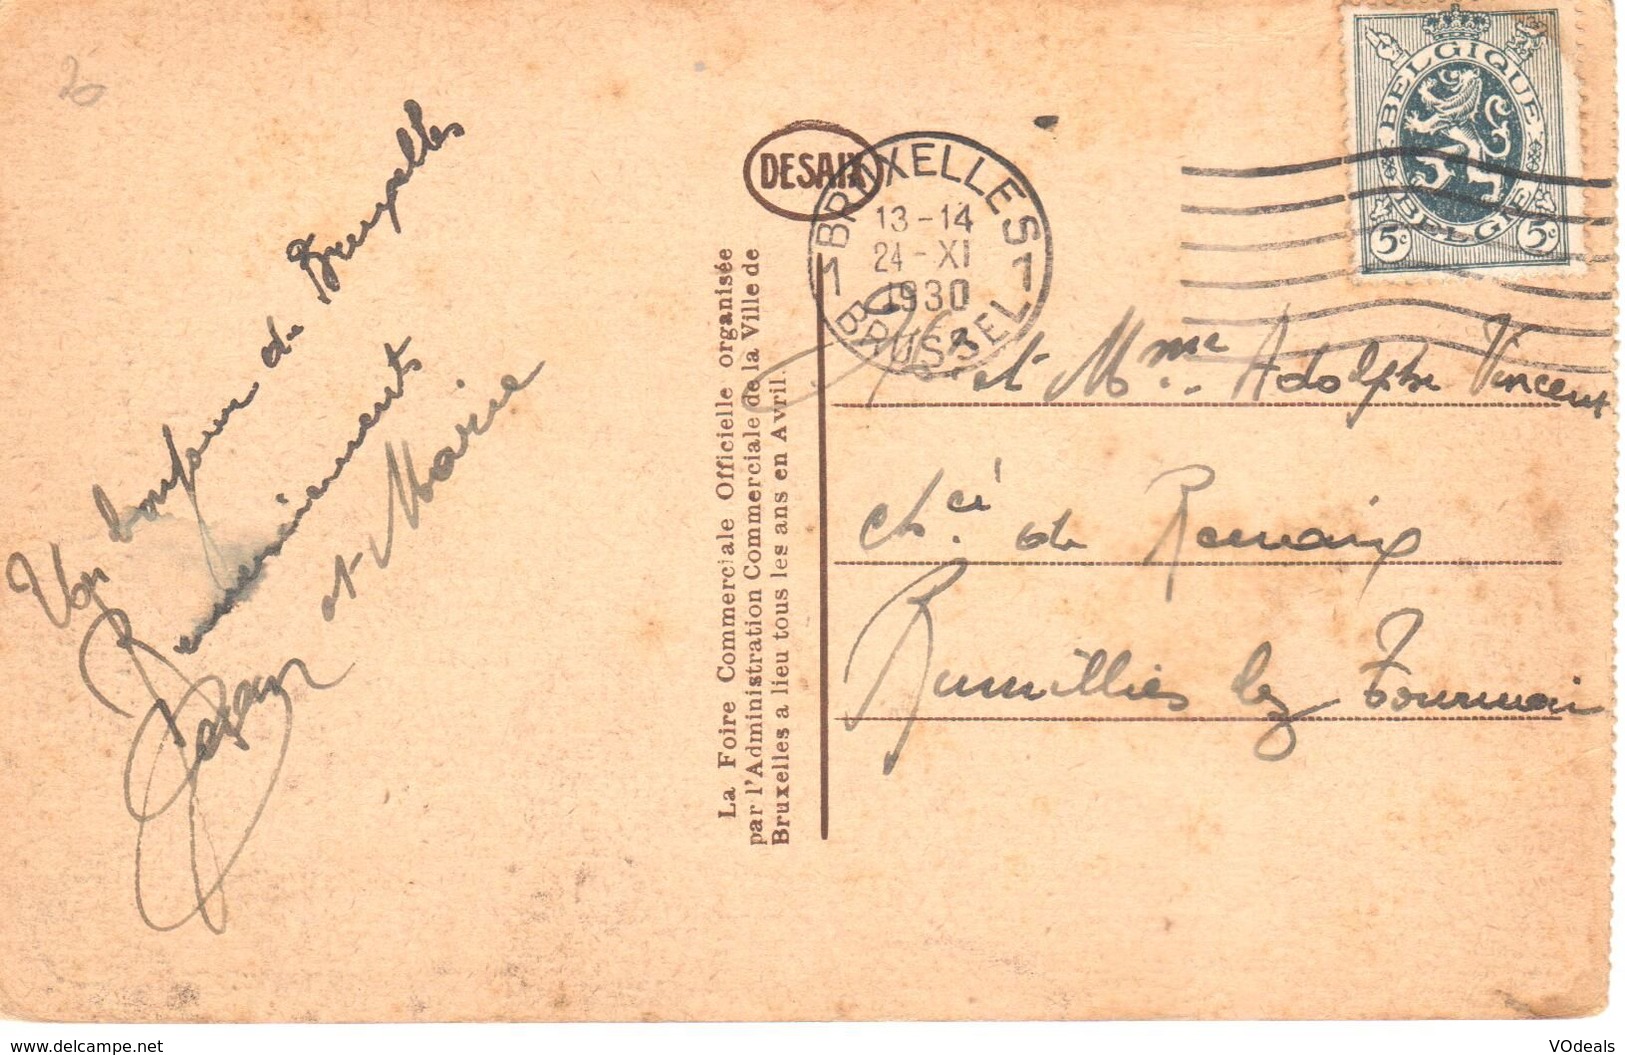 20
Un bonjour de Bruxelles
Remerciements
et Marie
DESAIX
La Foire Commerciale Officielle organisée
par l'Administration Commerciale de la Ville de
Bruxelles a lieu tous les ans en Avril.
BRUXELLES
13-14
24-XI
1930
1 1
BRUSSEL
BELGIQUE
BELGIË
5c 5c
et Mme Adolphe Vincent
chée de Renaix
Rumillies lez Tournai
www.delcampe.net
VOdeals